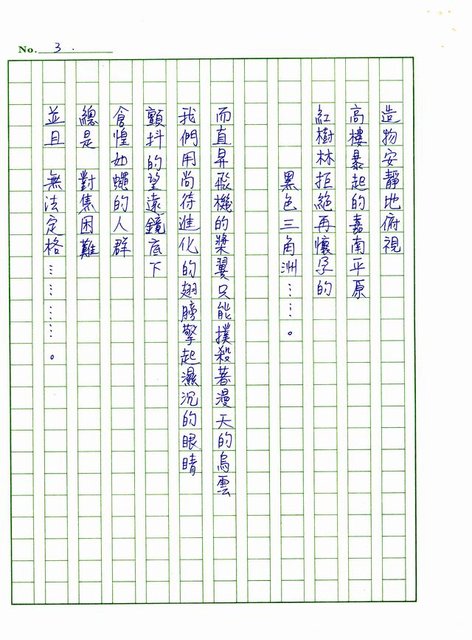 No. 3.
造物安靜地俯視
高樓暴起的嘉南平原
紅樹林拒絕再懷孕的
黑色三角洲……。
而直昇飛機的槳翼只能撲殺著漫天的烏雲
我們用尚待進化的翅膀擎起濕沉的眼睛
顫抖的望遠鏡底下
倉惶如蠅的人群
總是 對焦困難
並且 無法定格………。